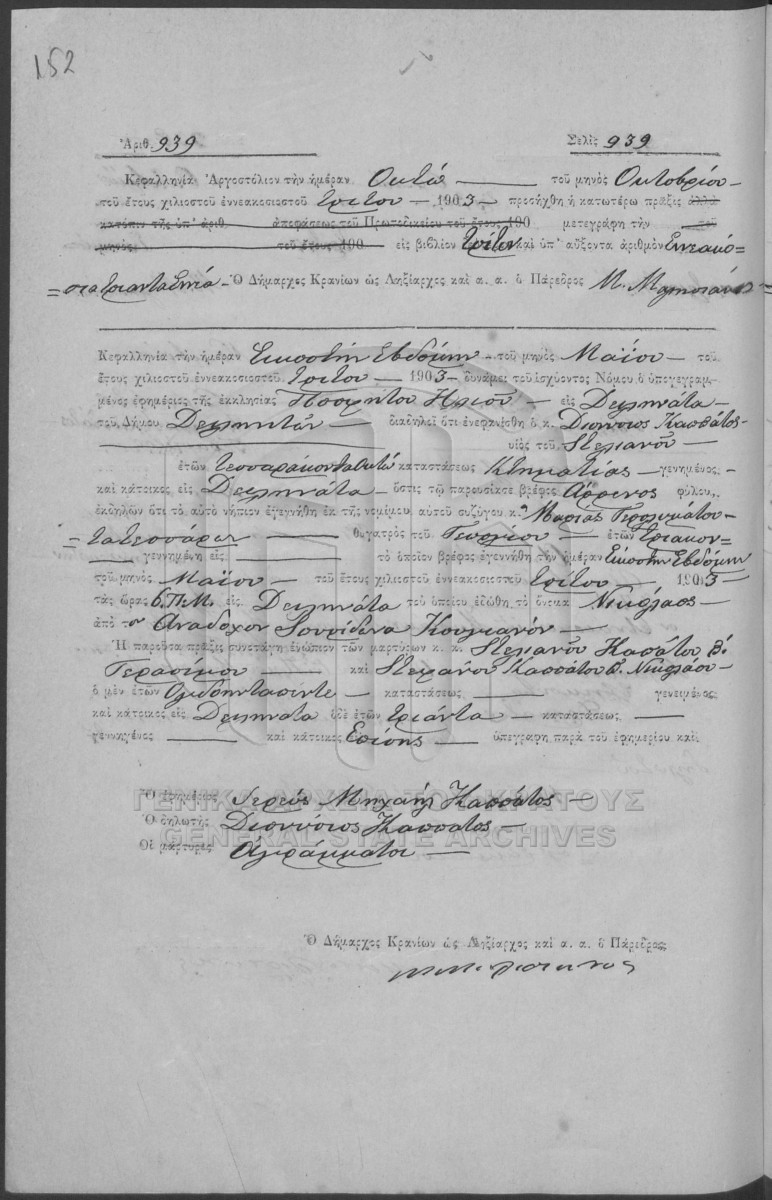 152
Ἀριθ. 939 Σελὶς 939
Κεφαλληνία Ἀργοστόλιον τὴν ἡμέραν Οκτώ τοῦ μηνὸς Οκτωβρίου
τοῦ ἔτους χιλιοστοῦ ἐννεακοσιοστοῦ τρίτου 1903 προσήχθη ἡ κατωτέρω πρᾶξις ἀλλὰ
κατόπιν τῆς ὑπ' ἀριθ. ἀποφάσεως τοῦ Πρωτοδικείου τοῦ ἔτους 190 μετεγράφη τὴν τοῦ
μηνὸς τοῦ ἔτους 190 εἰς βιβλίον τρίτον καὶ ὑπ' αὔξοντα ἀριθμὸν Εννιακό=
=σια τριάντα εννιά Ὁ Δήμαρχος Κρανίων ὡς Ληξίαρχος καὶ α. α. ὁ Πάρεδρος Μ.
Κεφαλληνία τὴν ἡμέραν Εικοστήν Εβδόμην τοῦ μηνὸς Μαΐου τοῦ
ἔτους χιλιοστοῦ ἐννεακοσιοστοῦ τρίτου 1903 δυνάμει τοῦ ἰσχύοντος Νόμου ὁ ὑπογεγραμ-
μένος ἐφημέριος τῆς ἐκκλησίας Προφήτου Ηλιού εἰς Δειλινάτα
τοῦ Δήμου διαδηλοῖ ὅτι ἐνεφανίσθη ὁ κ. Διονύσιος Καππάτος
υἱὸς τοῦ Στελιανού
ἐτῶν τεσσαράκοντα οκτώ καταστάσεως Κτηματίας γενημένος
καὶ κάτοικος εἰς Δειλινάτα ὅστις τῷ παρουσίασε βρέφος άρρενος φύλου,
ἐκδηλῶν ὅτι τὸ αὐτὸ νήπιον ἐγεννήθη ἐκ τῆς νομίμου αὐτοῦ συζύγου κ. Μαρίας
=τατεσσάρων θυγατρὸς τοῦ Γεωργίου ἐτῶν τριακον=
γεννημένη εἰς τὸ ὁποῖον βρέφος ἐγεννήθη τὴν ἡμέραν Εικοστήν Εβδόμην
τοῦ μηνὸς Μαΐου τοῦ ἔτους χιλιοστοῦ ἐννεακοσιοστοῦ τρίτου 1903
τὰς ὥρας 6.Π.Μ. εἰς Δειλινάτα τοῦ ὁποίου ἐδώθη τὸ ὄνομα Νικόλαος
ἀπὸ τον Ανάδοχον Σπυρίδωνα
Ἡ παροῦσα πρᾶξις συνετάγη ἐνώπιον τῶν μαρτύρων κ. κ. Στελιανού Καππάτου
Γερασίμου καὶ Στελιανού Καππάτου Νικολάου
ὁ μὲν ἐτῶν Ογδοήντα πέντε καταστάσεως γενειμένος
καὶ κάτοικος εἰς Δειλινάτα ὁδὲ ἐτῶν τριάντα καταστάσεως
γεννηγένος καὶ κάτοικος Επίσης ὑπεγραφη παρὰ τοῦ ἐφημερίου καὶ
Ὁ ἐφημέριος Ιερεύς Μιχαήλ Καππάτος
Ὁ δηλωτὴς Διονύσιος Καππάτος
Οἱ μάρτυρες Αγράμματοι
ΓΕΝΙΚΑ ΑΡΧΕΙΑ ΤΟΥ ΚΡΑΤΟΥΣ
GENERAL STATE ARCHIVES
Ὁ Δήμαρχος Κρανίων ὡς Ληξίαρχος καὶ α. α. ὁ Πάρεδρος